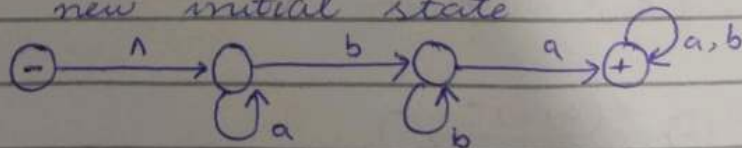 new initial state
- Λ b a + a, b
a b